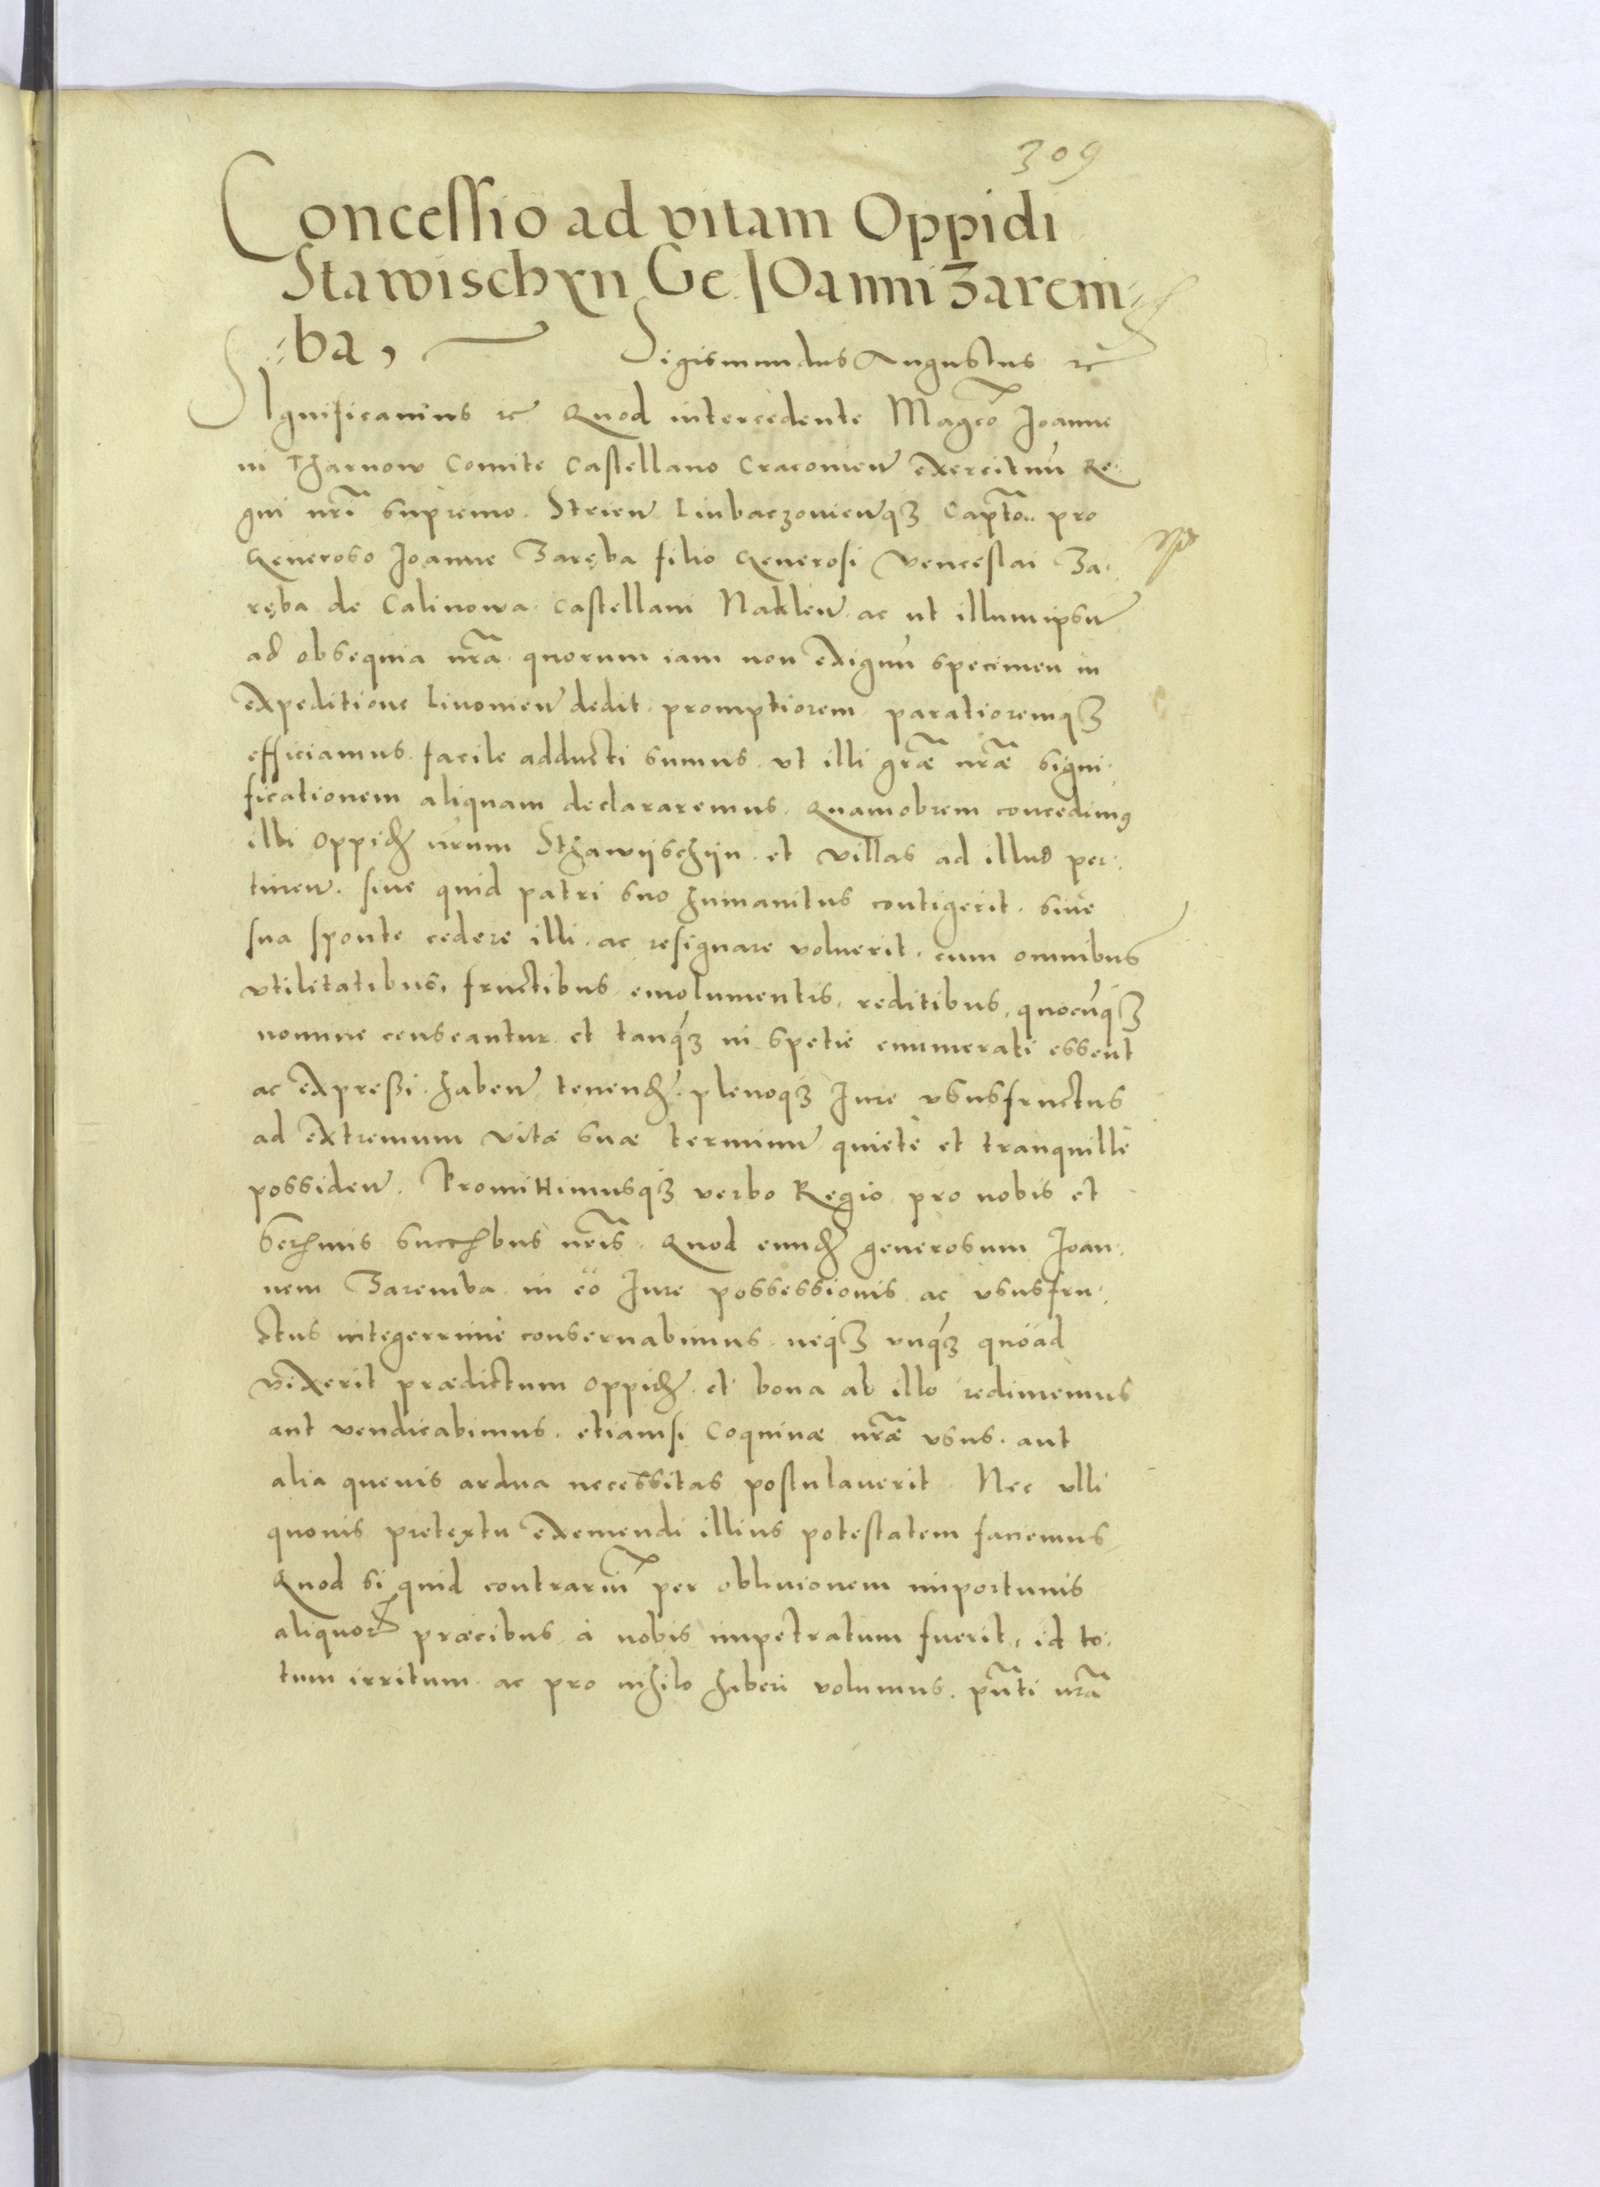 309
Concessio ad vitam Oppidi
Stawischyn Ge. Ioanni Zarem
ba,
Sigismundus Augustus etc
Significamus etc Quod intercedente Magco Joanne
in Tharnow Comite Castellano Cracovien exercituu Re
gni nri supremo. Strien Liubaczovienqz Captō. pro
Generoso Joanne Zaręba filio Generosi Venceslai Za
ręba de Calinowa Castellani Naklen. ac ut illum ipsu
ad obsequia nra. quorum iam non exiguu specimen in
expeditione Livonien dedit. promptiorem paratioremqz
efficiamus. facile adducti sumus. vt illi grae nrae signi
ficationem aliquam declararemus. Quamobrem concedimus
illi Oppid nrum Sthawijschijn. et villas ad illud per
tinen. sive quid patri suo humanitus contigerit. sive
sua sponte cedere illi. ac resignare voluerit. cum omnibus
vtilitatibus, fructibus emolumentis, reditibus, quocuqz
nomine censeantur et tanqz in spetie enumerati essent
ac expressi. haben tenend. plenoqz Jure vsusfructus
ad extremum vitae suae terminu quiete et tranquille
possiden. Promittimusqz verbo Regio pro nobis et
Sermis succbus nris. Quod eund generosum Joan
nem Zaremba in eo Jure possessionis ac vsusfru
ctus integerrime conservabimus. neqz vnqz quoad
vixerit praedictum oppid. et bona ab illo redimemus
aut vendicabimus. etiamsi Coquinae nrae vsus. aut
alia quevis ardua necessitas postulaverit. Nec vlli
quovis pretextu exemendi illius potestatem faciemus
Quod si quid contrariu per oblivionem importunis
aliquor praecibus à nobis impetratum fuerit, id to
tum irritum ac pro nihilo haberi volumus. pnti nra